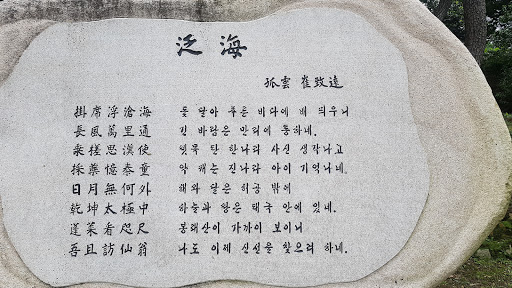 泛海
孤雲 崔致遠
掛席浮滄海 돛 달아 푸른 바다에 배 띄우니
長風萬里通 긴 바람은 만리에 통하네.
乘槎思漢使 뗏목 탄 한나라 사신 생각나고
採藥憶秦童 약 캐는 진나라 아이 기억나네.
日月無何外 해와 달은 허공 밖에
乾坤太極中 하늘과 땅은 태극 안에 있네.
蓬萊看咫尺 봉래산이 가까이 보이니
吾且訪仙翁 나도 이제 신선을 찾으려 하네.